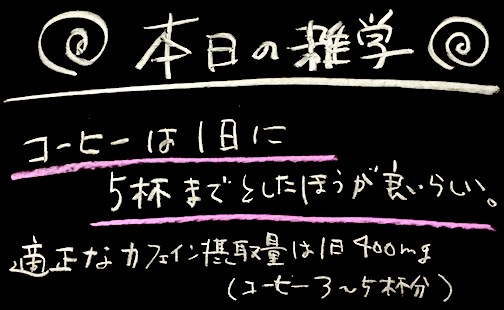 本日の雑学
コーヒーは1日に
5杯までとしたほうが良いらしい。
適正なカフェイン摂取量は1日400mg
(コーヒー3～5杯分)